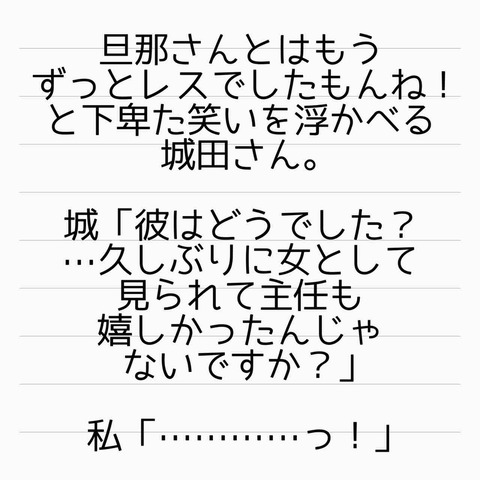 旦那さんとはもう
ずっとレスでしたもんね！
と下卑た笑いを浮かべる
城田さん。
城「彼はどうでした？
…久しぶりに女として
見られて主任も
嬉しかったんじゃ
ないですか？」
私「…………っ！」